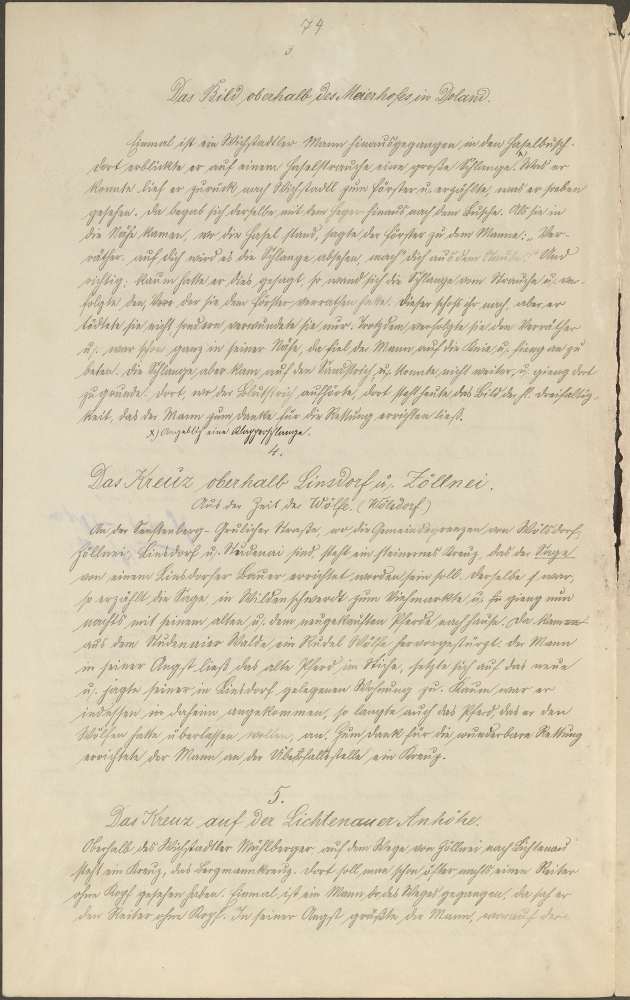 74
3
Das Bild oberhalb des Meierhofes in Doland.
Einmal ist ein Wichstadtler Mann hinausgegangen in den Haselbusch.
Dort erblickte er auf einem Haselstrauche eine große Schlange. x) Was er
konnte lief er zurück nach Wichstadtl zum Förster u. erzählte, was er soeben
gesehen. Da begab sich derselbe mit dem Heger hinaus nach dem Busche. Als sie in
die Nähe kamen, wo die Hasel stand, sagte der Förster zu dem Manne: „Ver-
räther, auf dich wird es die Schlange absehen, mach' dich aus dem Staube!" Und
richtig: kaum hatte er dies gesagt, so wand sich die Schlange vom Strauche u. ver-
folgte den, der sie dem Förster verrathen hatte. Dieser schoß ihr nach, aber er
tödtete sie nicht sondern verwundete sie nur. Trotzdem verfolgte sie den Verräther
u. war schon ganz in seiner Nähe, da fiel der Mann auf die Knie u. fieng an zu
beten. Die Schlange aber kam auf den Sandstrich u. konnte nicht weiter, u. gieng dort
zu grunde. Dort, wo der Blutstrich aufhörte, dort steht heute das Bild der hl. Dreifaltig-
keit, das der Mann zum Danke für die Rettung errichten ließ.
x) Angeblich eine Klapperschlange.
4.
Das Kreuz oberhalb Linsdorf u. Zöllnei.
Aus der Zeit der Wölfe. (Wölsdorf)
An der Senftenberg-Grulicher Straße, wo die Gemeindegrenzen von Wölsdorf,
Zöllnei, Linsdorf u. Studenai sind, steht ein steinernes Kreuz, das der Sage
von einem Linsdorfer Bauer errichtet worden sein soll. Derselbe war,
so erzählt die Sage, in Wildenschwerdt zum Viehmarkte u. gieng nun
nachts mit seinem alten u. dem neugekauften Pferde nach hause. Da kam
aus dem Studenaier Walde ein Rudel Wölfe hervorgestürzt. Der Mann
in seiner Angst ließ das alte Pferd im Stiche, setzte sich auf das neue
u. jagte seiner in Linsdorf gelegenen Wohnung zu. Kaum war er
indessen in daheim angekommen, so langte auch das Pferd, das er den
Wölfen hatte überlassen wollen, an. Zum Dank für die wunderbare Rettung
errichtete der Mann an der Überfallsstelle ein Kreuz.
5.
Das Kreuz auf der Lichtenauer Anhöhe.
Oberhalb des Wichstadtler Mühlberges auf dem Wege von Zöllnei nach Lichtenau
steht ein Kreuz, das Bergmannkreuz. Dort soll man schon öfter nachts einen Reiter
ohne Kopf gesehen haben. Einmal ist ein Mann des Weges gegangen, da sah er
den Reiter ohne Kopf. In seiner Angst grüßte der Mann, worauf der